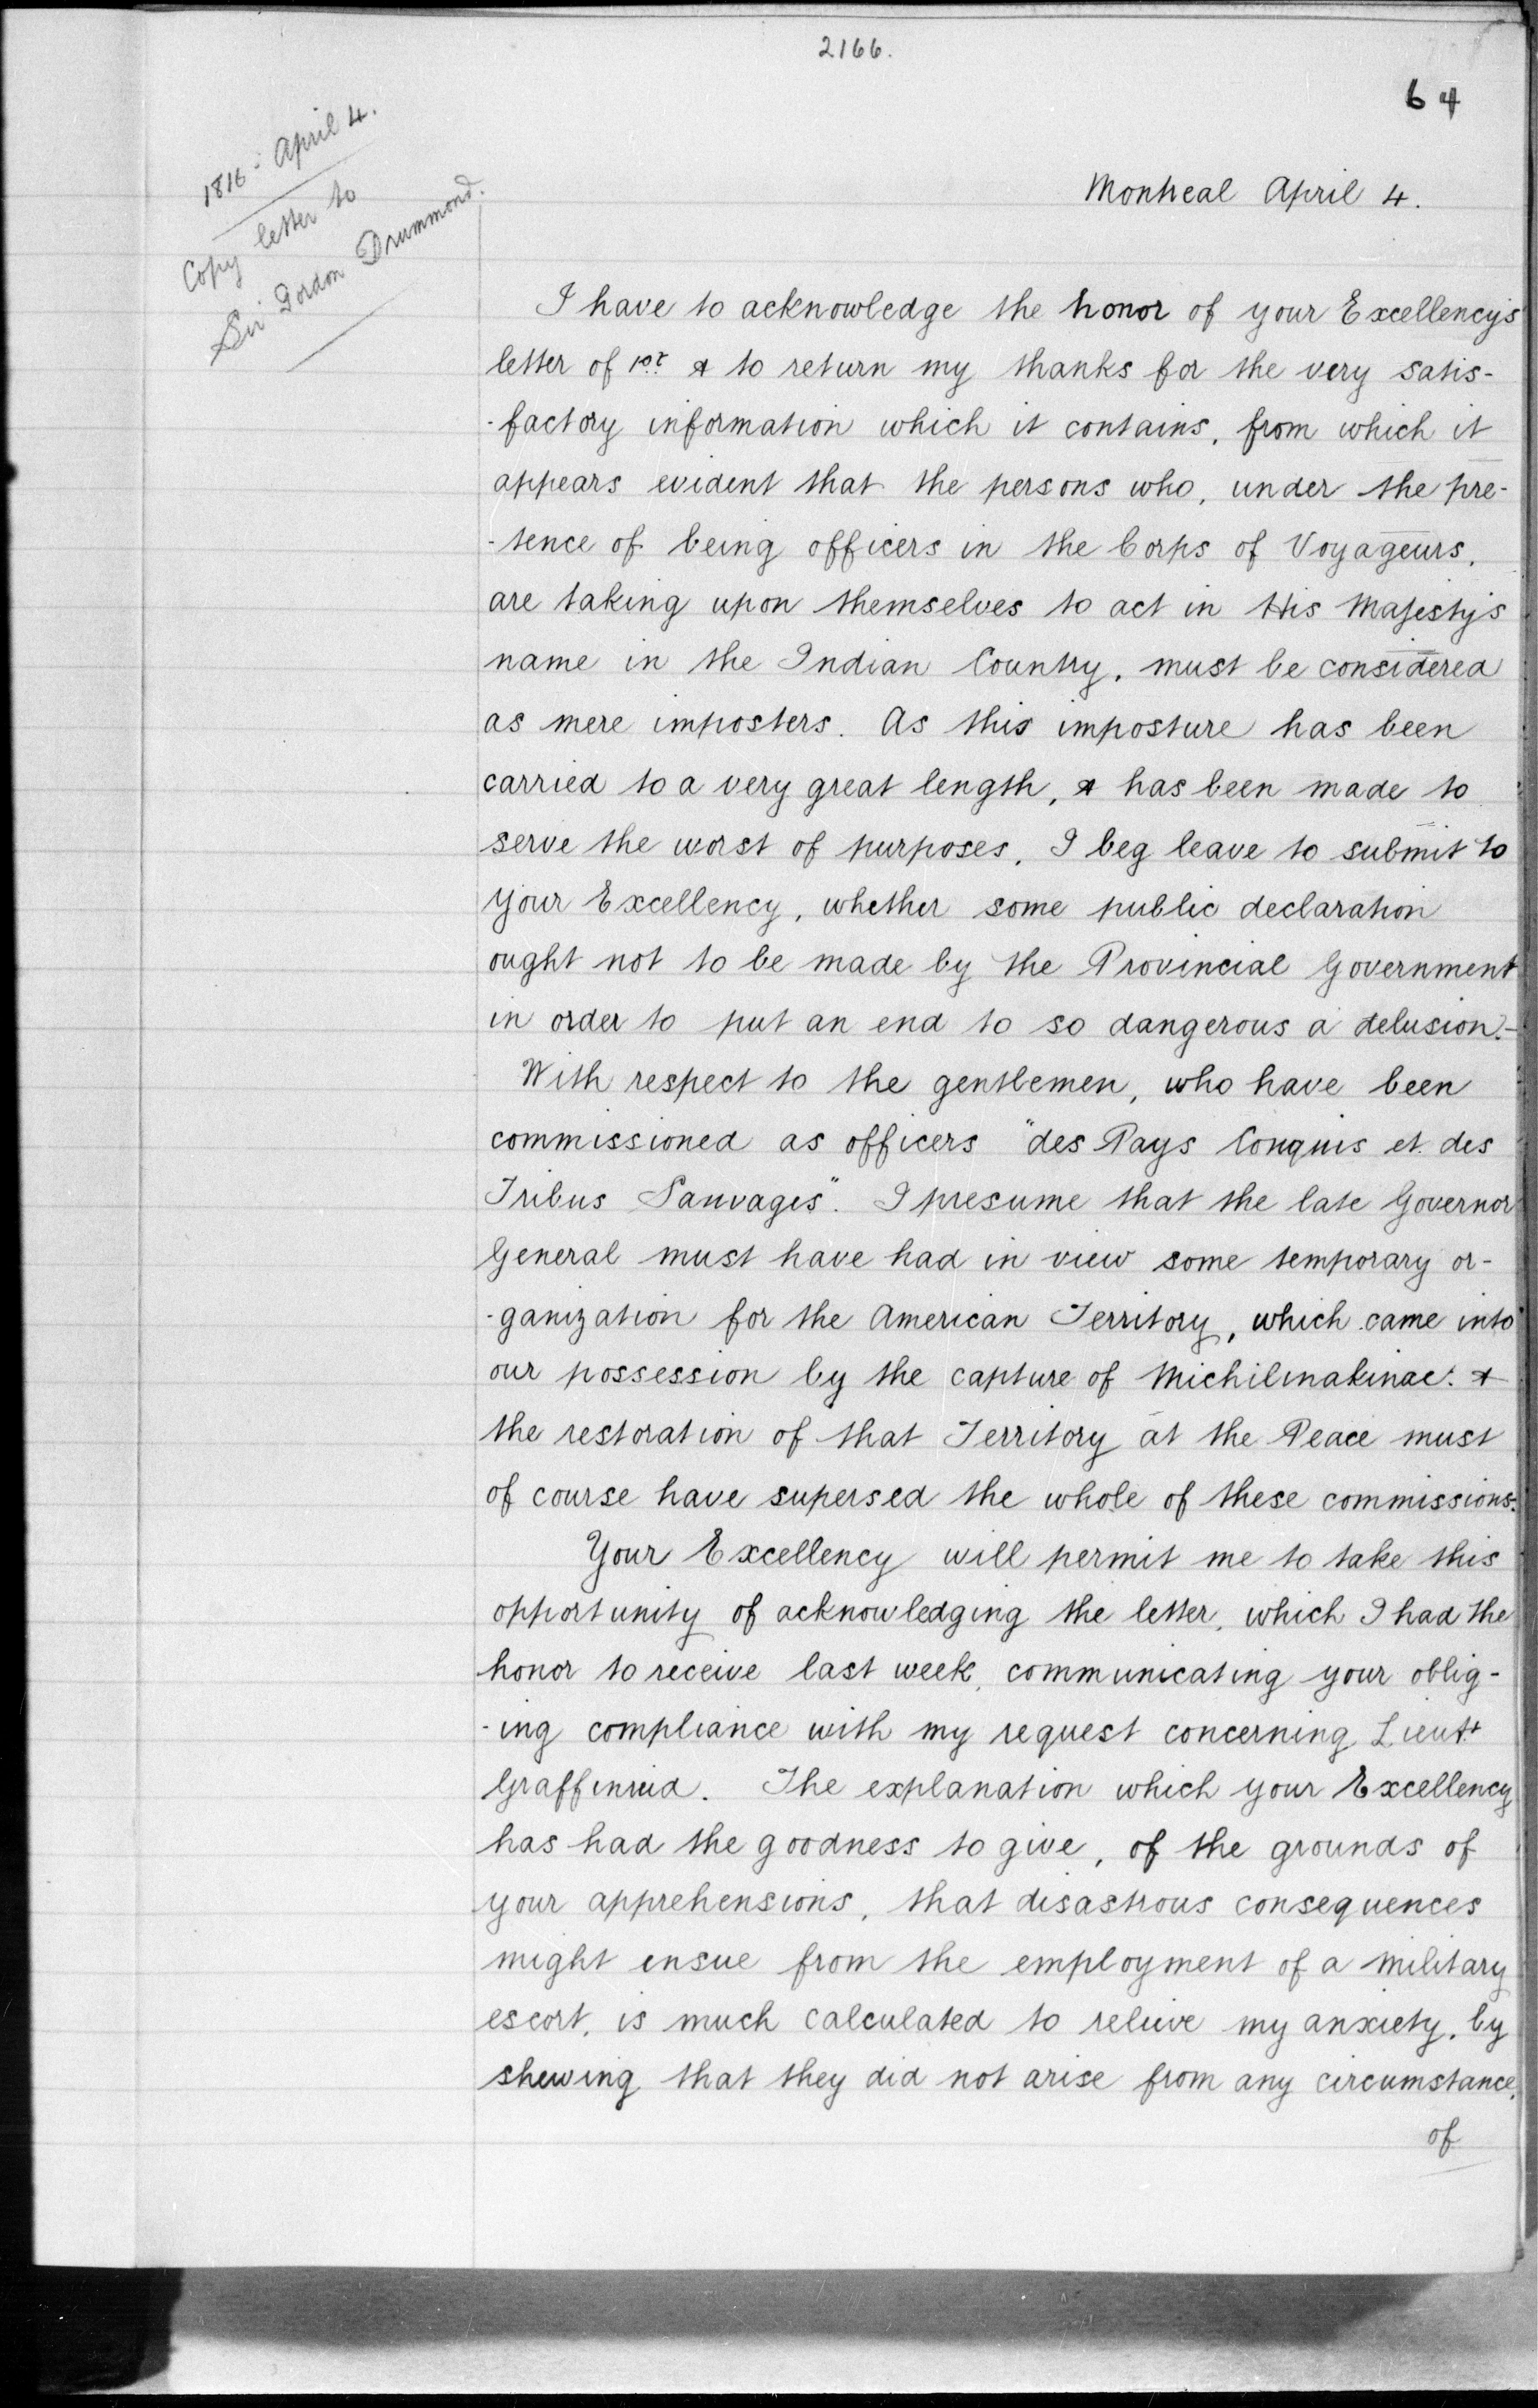 2166.
64
1816 - April 4.
Copy letter to
Sir Gordon Drummond.
Montreal April 4.
I have to acknowledge the honor of your Excellency's
letter of 1st & to return my thanks for the very satis-
-factory information which it contains, from which it
appears evident that the persons who, under the pre-
-tence of being officers in the Corps of Voyageurs,
are taking upon themselves to act in His Majesty's
name in the Indian Country, must be considered
as mere imposters. As this imposture has been
carried to a very great length, & has been made to
serve the worst of purposes, I beg leave to submit to
your Excellency, whether some public declaration
ought not to be made by the Provincial Government
in order to put an end to so dangerous a delusion.-
With respect to the gentlemen, who have been
commissioned as officers "des Pays Conquis et des
Tribus Sauvages". I presume that the late Governor
General must have had in view some temporary or-
-ganization for the American Territory, which came into
our possession by the capture of Michilmakinac: &
the restoration of that Territory at the Peace must
of course have supersed the whole of these commissions.
Your Excellency will permit me to take this
opportunity of acknowledging the letter, which I had the
honor to receive last week, communicating your oblig-
-ing compliance with my request concerning Lieutt
Graffenried. The explanation which your Excellency
has had the goodness to give, of the grounds of
your apprehensions, that disastrous consequences
might ensue from the employment of a military
escort, is much calculated to relieve my anxiety, by
shewing that they did not arise from any circumstance,
of